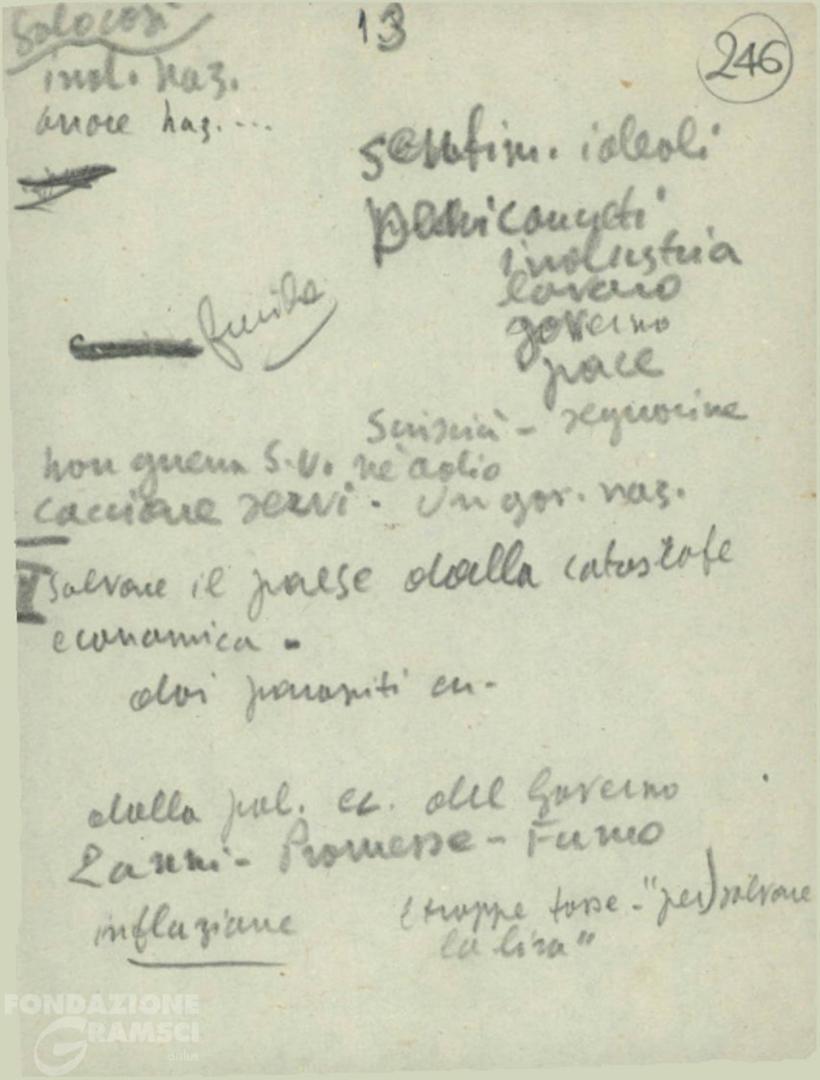 Solo così
13
246
ind. naz.
onore naz. ...
sentim. ideali
industria
lavoro
governo
pace
funiba
Scissió -
non guerra S.U. nè odio
cacciare servi. Un gov. naz.
I salvare il paese dalla catastrofe
economica -
dai parassiti ec-
dalla pol. ec. del Governo
Zanni - Promesse - Fumo
inflazione
(troppe tasse - "per) salvare
la lira"
FONDAZIONE
GRAMSCI
onlus